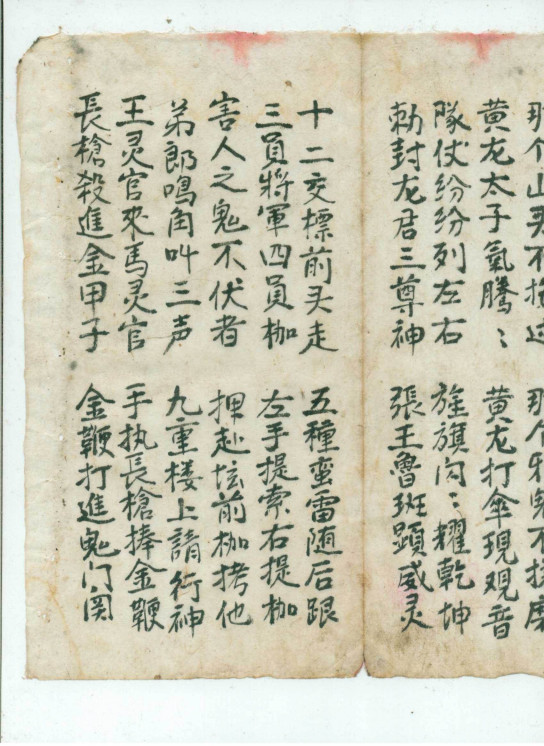 那个山头不 那个邪鬼不
黄龙太子氣騰〻 黄龙打傘現观音
隊仗纷纷列左右 旌旗闪〻耀乾坤
勅封龙君三尊神 張王魯班顕威灵
十二交標前头走 五種蛮雷随后跟
三員將軍四員枷 左手提索右提枷
害人之鬼不伏者 押赴坛前枷拷他
弟郎鳴角叫三声 九重楼上請行神
王灵官來馬灵官 手执長槍捧金鞭
長槍殺進金甲子 金鞭打進鬼门関